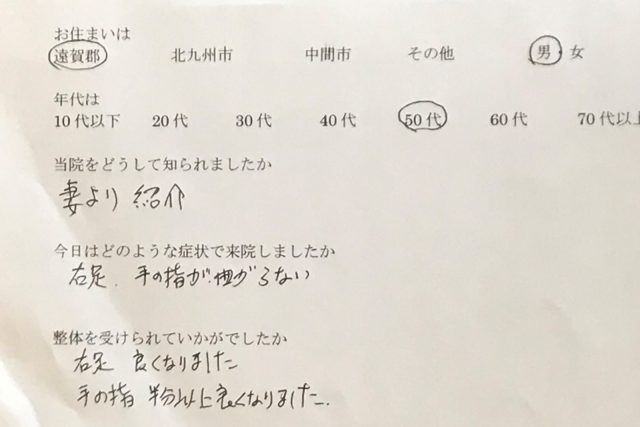 お住まいは
遠賀郡 北九州市 中間市 その他 男 女
年代は
10代以下 20代 30代 40代 50代 60代 70代以上
当院をどうして知られましたか
妻より 紹介
今日はどのような症状で来院しましたか
右足、手の指が曲がらない
整体を受けられていかがでしたか
右足 良くなりました
手の指 半分以上良くなりました。